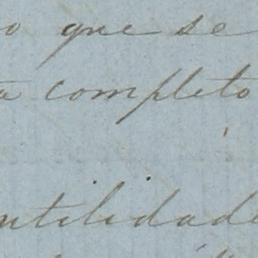 o que se
a completo
ntilidade